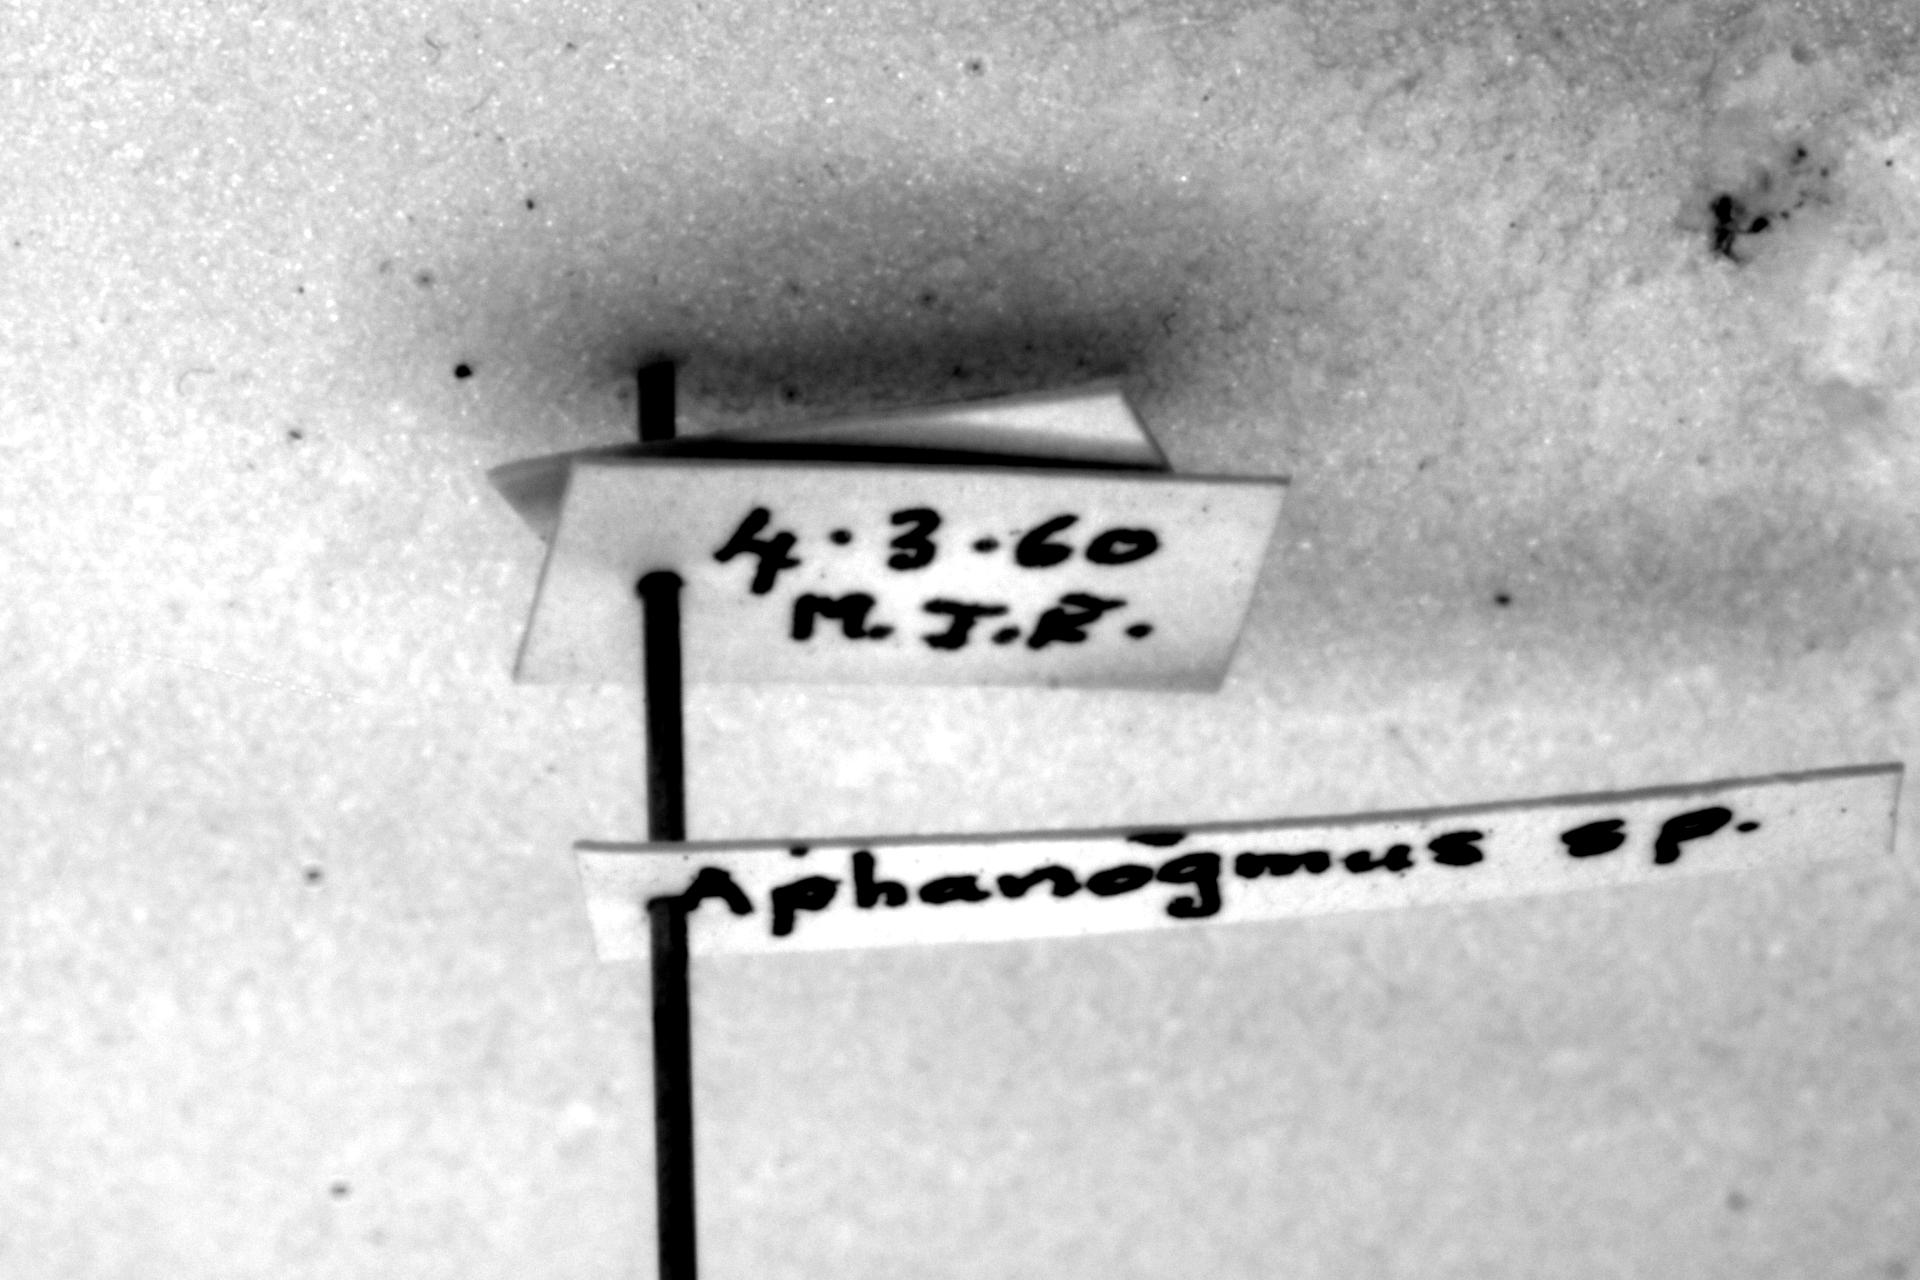 4·3·60
M.J.R.
Aphanogmus sp.